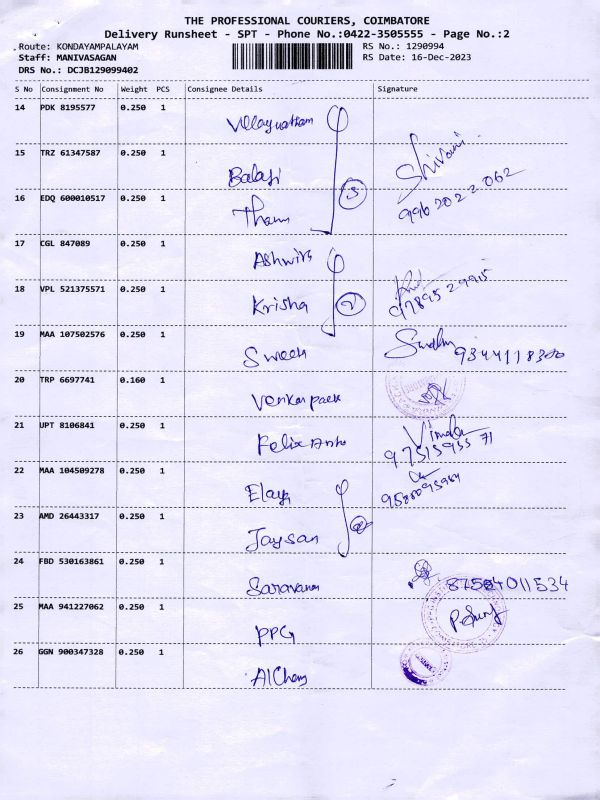 THE PROFESSIONAL COURIERS, COIMBATORE
Delivery Runsheet - SPT - Phone No.:0422-3505555 - Page No.:2
Route: KONDAYAMPALAYAM RS No.: 1290994
Staff: MANIVASAGAN RS Date: 16-Dec-2023
DRS No.: DCJB129099402
S No Consignment No Weight PCS Consignee Details Signature
14 PDK 8195577 0.250 1
15 TRZ 61347587 0.250 1 Balaji 3 Shivani
16 EDQ 600010517 0.250 1 Tham 9962022062
17 CGL 847089 0.250 1 Ashwin
18 VPL 521375571 0.250 1 Krisha 2 9789529915
19 MAA 107502576 0.250 1 Swech 9344118300
20 TRP 6697741 0.160 1
21 UPT 8106841 0.250 1 Felix Anto Vimala
9751595571
22 MAA 104509278 0.250 1 Elay
23 AMD 26443317 0.250 1 Jaysan
24 FBD 530163861 0.250 1 Saravanan 8754011534
25 MAA 941227062 0.250 1 PPG
26 GGN 900347328 0.250 1 AlChem